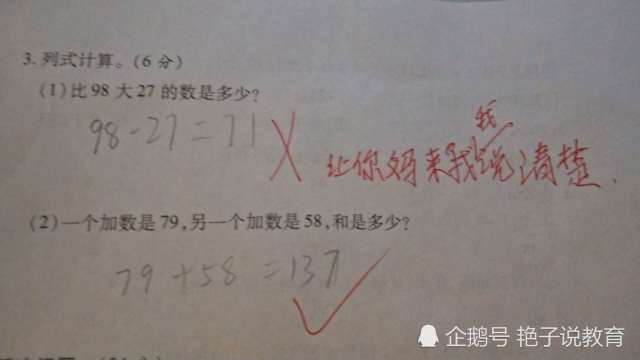 3.列式计算。(6分)
(1)比98大27的数是多少?
98-27=71
我
让你妈来我说清楚.
(2)一个加数是79,另一个加数是58,和是多少?
79+58=137
企鹅号 艳子说教育